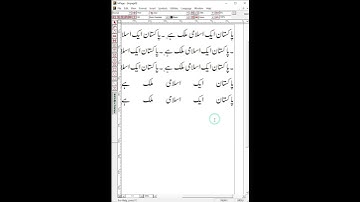 پاکستان ایک اسلامی ملک ہے ۔ پاکستان ایک اسلا
پاکستان ایک اسلامی ملک ہے ۔ پاکستان ایک اسلا
پاکستان ایک اسلامی ملک ہے ۔ پاکستان ایک اسلا
پاکستان ایک اسلامی ملک ہے
پاکستان ایک اسلامی ملک ہے